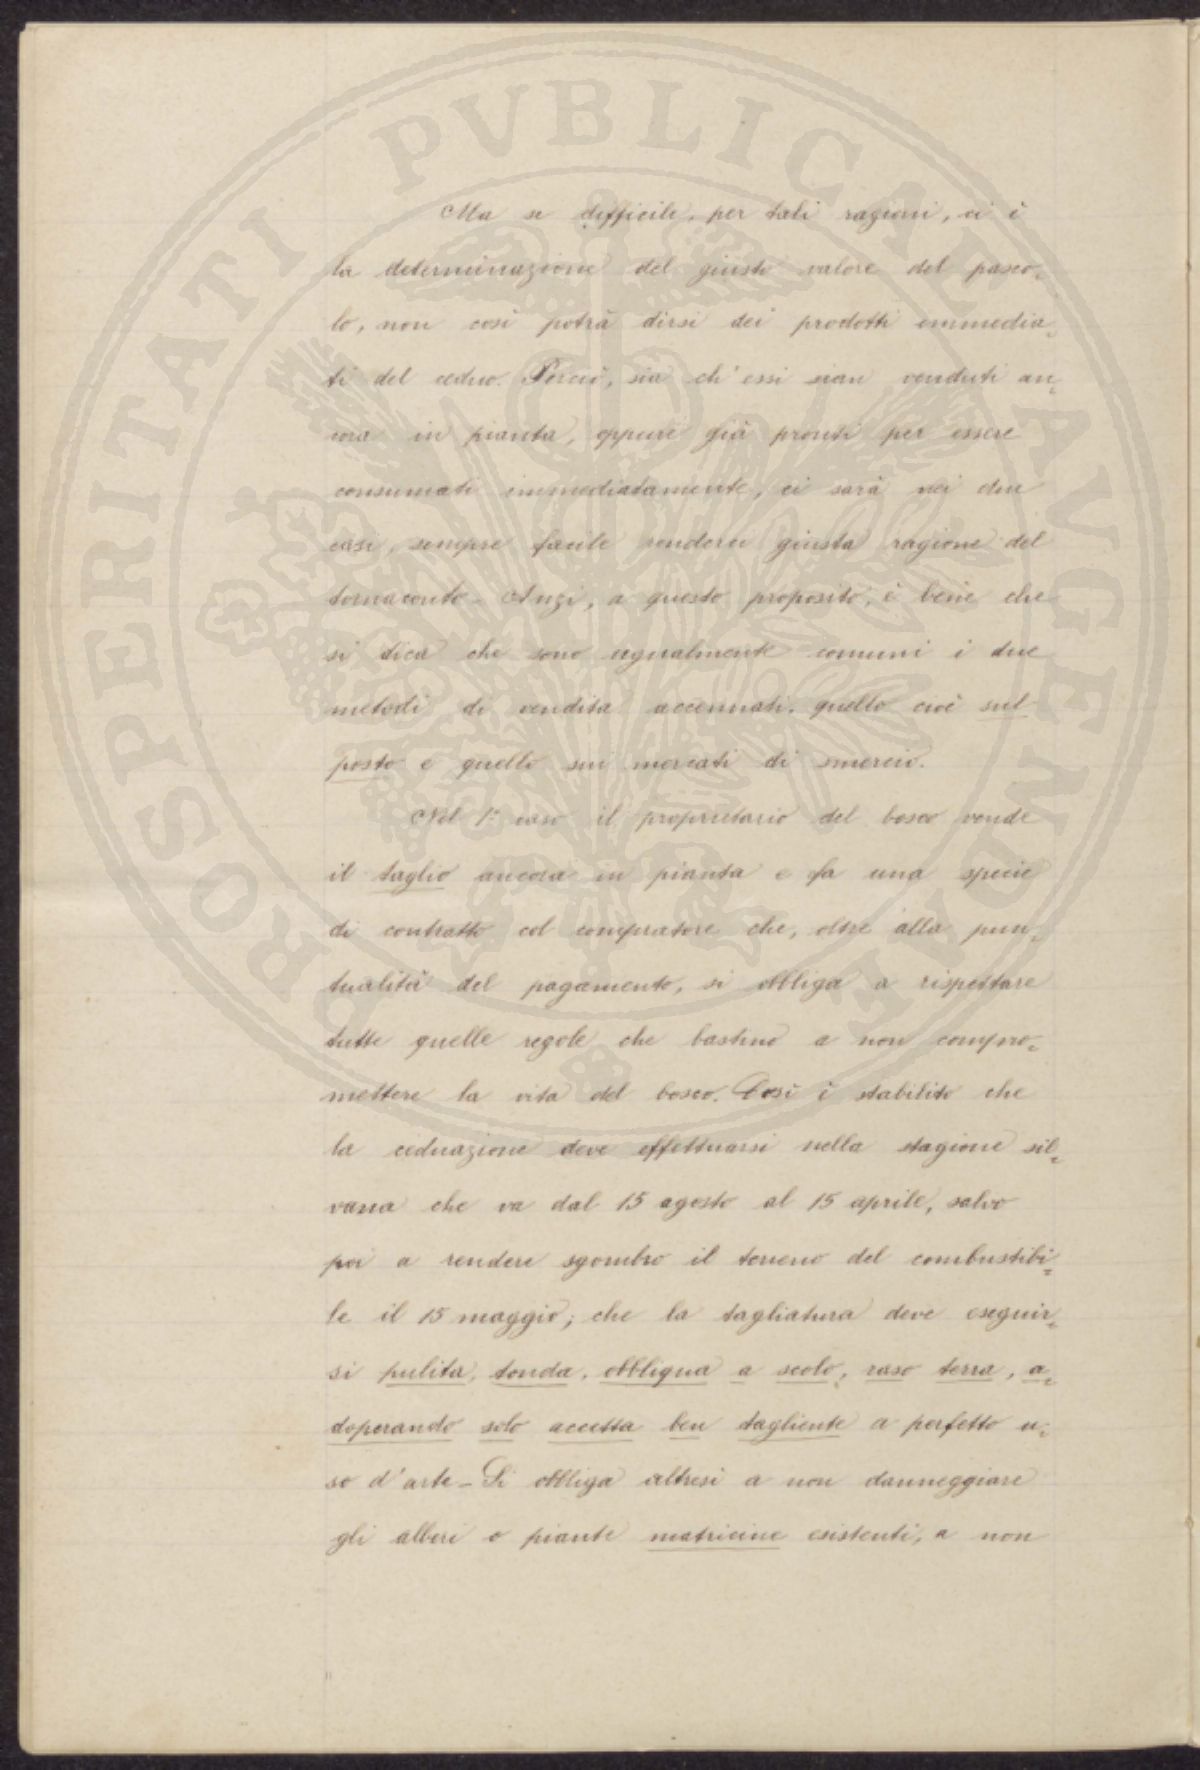 PROSPERITATI PVBLICAE AVGENDAE
Ma se difficile, per tali ragioni, ci è
la determinazione del giusto valore del pasco-
lo, non così potrà dirsi dei prodotti immedia-
ti del ceduo. Perciò, sia ch'essi sian venduti an-
cora in pianta, oppure già pronti per essere
consumati immediatamente, ci sarà nei due
casi, sempre facile renderci giusta ragione del
tornaconto - Anzi, a questo proposito, è bene che
si dica che sono ugualmente comuni i due
metodi di vendita accennati, quello cioè sul
posto e quello sui mercati di smercio.
Nel 1° caso il proprietario del bosco vende
il taglio ancora in pianta e fa una specie
di contratto col compratore che, oltre alla pun-
tualità del pagamento, si obbliga a rispettare
tutte quelle regole che bastino a non compro-
mettere la vita del bosco. Così è stabilito che
la ceduazione deve effettuarsi nella stagione sil-
vana che va dal 15 agosto al 15 aprile, salvo
poi a rendere sgombro il terreno del combustibi-
le il 15 maggio; che la tagliatura deve eseguir-
si pulita, tonda, obbliqua a scolo, raso terra, a-
doperando solo accetta ben tagliente a perfetto u-
so d'arte - Si obbliga altresì a non danneggiare
gli alberi o piante matricine esistenti, a non